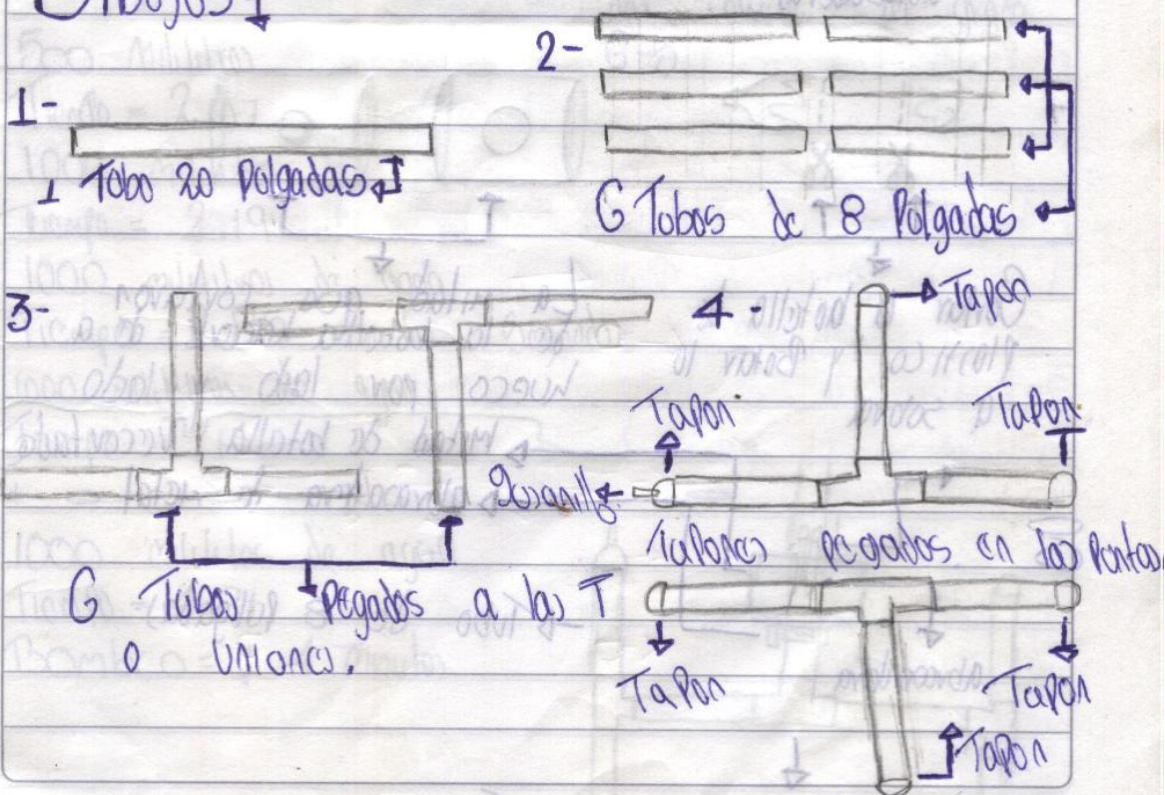 Dibujos
1-
1 Tubo 20 Polgadas
2-
6 Tubos de 8 Polgadas
3-
6 Tubos Pegados a las T
o Uniones.
4-
Tapon
Tapon
Tapon
Tapones pegados en las Puntas.
Tapon
Tapon
Tapon